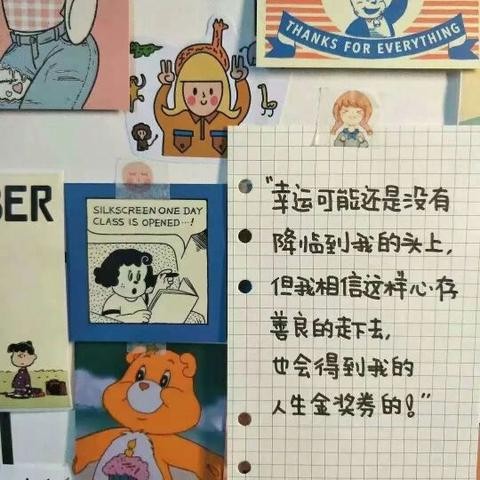 THANKS FOR EVERYTHING
BER
SILKSCREEN ONE DAY
CLASS IS OPENED···!
"幸运可能还是没有
降临到我的头上,
但我相信这样心存
善良的走下去,
也会得到我的
人生金奖券的!"